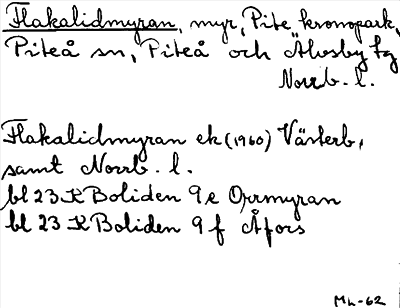 Flakalidmyran, myr, Pite kronopark,
Piteå sn, Piteå och Älvsby tg
Norrb. l.
Flakalidmyran ek (1960) Västerb.,
samt Norrb. l.
bl 23 K Boliden 9 e Orrmyran
bl 23 K Boliden 9 f Åfors
Mh-62